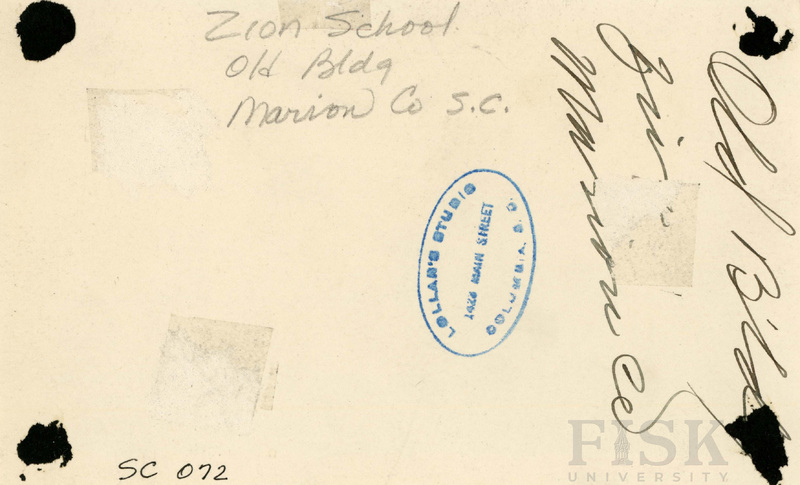 Zion School
Old Bldg
Marion Co S.C.
Old Bldg
Marion Co
LOLLAR'S STUDIO
1426 MAIN STREET
COLUMBIA, S. C.
SC 072
FISK
UNIVERSITY